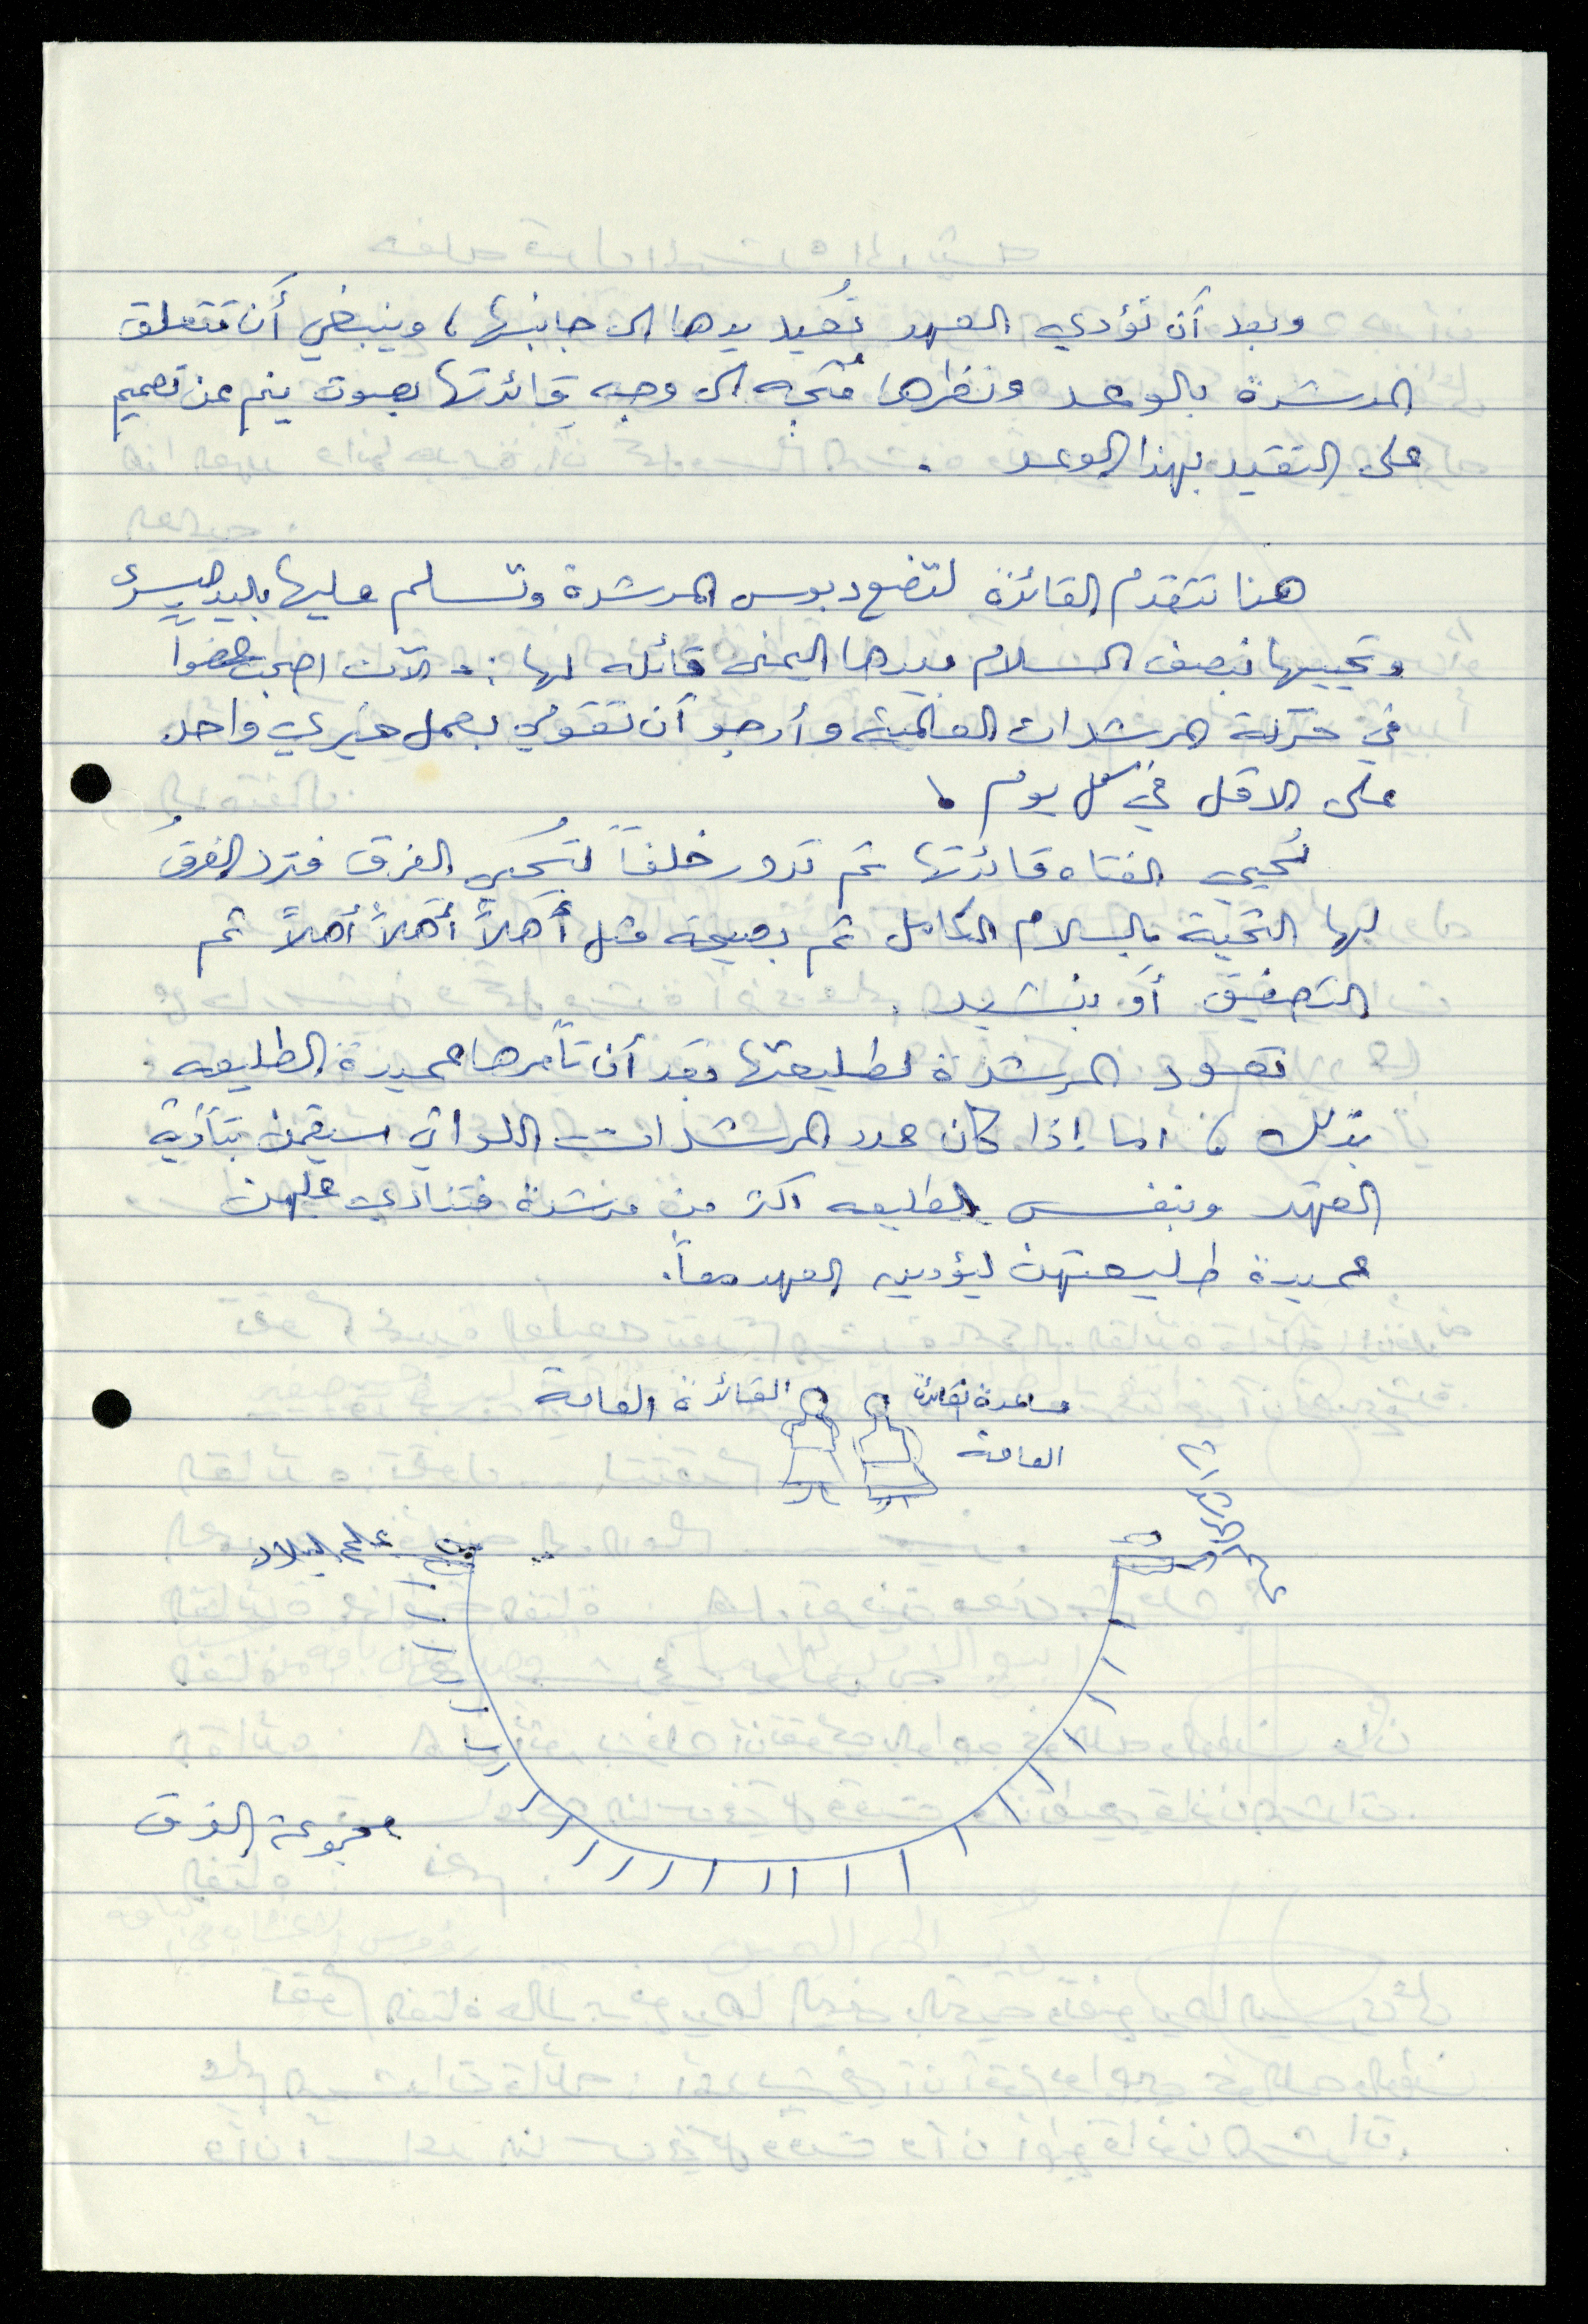 وبعد أن تؤدي العهد تُعيد يدها الى جانبها، وينبغي أن تتعلق
المرشدة بالوعد ونظرها مُتجه الى وجه قائدتها بصوت ينم عن تصميم
على التقيد بهذا الوعد .
هنا تتقدم القائدة لتضع دبوس المرشدة وتسلم عليها باليد اليسرى
وتحييها نبصف السلام بيدها اليمنى قائله لها : الآن اصبحت عضواً
في حركة المرشدات العالمية وأرجو أن تقومي بعمل خيري واحد
على الاقل في كل يوم .
تُحيي الفتاه قائدتها ثم تدور خلفاً لتُحيي الفرق فترد الفرقُ
لها التحية بالسلام الكامل ثم بصيحة مثل أهلاً أهلاً أهلاً ثم
التصفيق أو بنشيد .
تعود المرشدة لطليعتها بعد أن تأمرها عميدة الطليعه .
بذلك ، اما إذا كان عدد المرشدات اللواتي سيقمن بتأدية
العهد وبنفس الطليعه اكثر من مرشدة فتنادي عليهن
عميدة طليعتهن ليؤدين العهد معاً.
مساعدة القائدة
القائدة العامة
العامة
علم المرشدات
علم البلاد
مجموعة الفرق